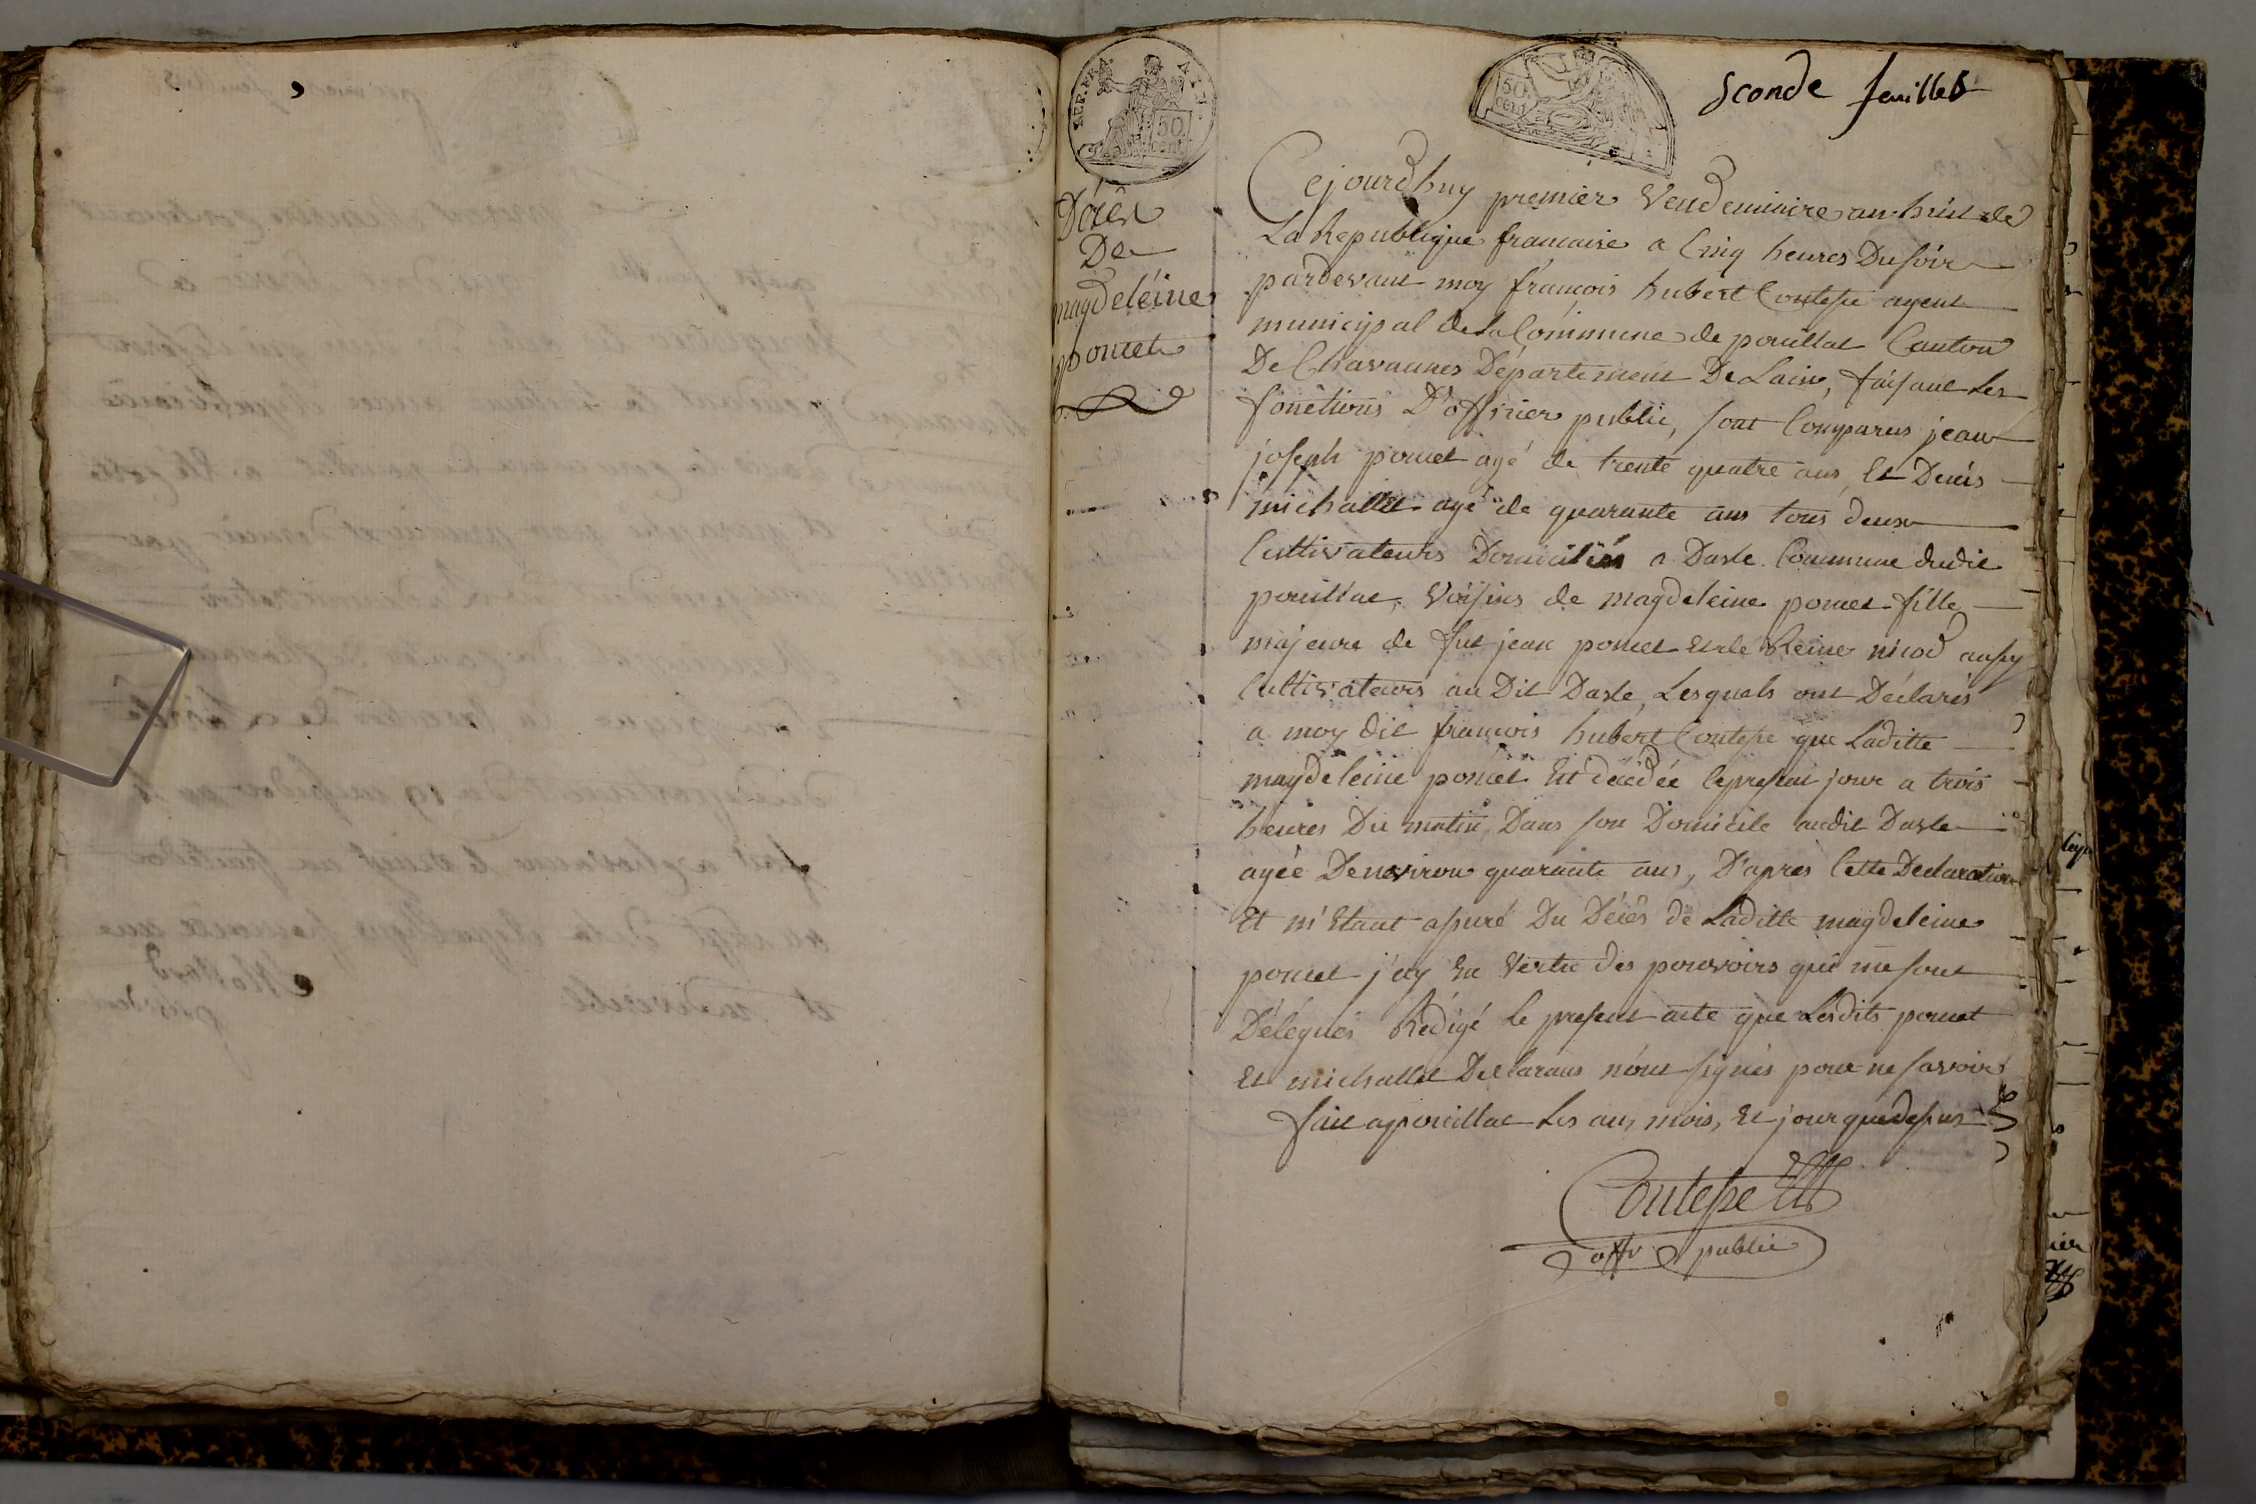 sconde feuillet
REP. FRA.
50
cent
50
CENT
Décés
De
magdeleine
poncet
Cejourdhuy premier Vendemiaire an huit de
La Republique francaise a Cinq heures Du soir
pardevant moy francois hubert Contesse agent
municipal de la Commune de pouillat Canton
De Chavannes Département De Lain, faisant Les
fonctions D'officier public, sont Comparus jean
joseph poncet agé de trente quatre ans, Et Denis
michallet agé de quarante ans tous deux
Cultivateurs Domiciliés a Dasle Commune dudit
pouillat, Voisins de magdeleine poncet fille
majeure de fut jean poncet et de Reine nicod aussy
Cultivateurs au Dit Dasle, Lesquels ont Déclarés
a moy dit francois hubert Contesse que Laditte
magdeleine poncet Est décédée le present jour a trois
heures Du matin, Dans son Domicile audit Dasle
agée Denviron quarante ans, D'apres Cette Declaration
Et m'Etant assuré Du Décés de Laditte magdeleine
poncet j'ay En Vertu des pouvoirs qui me sont
Délégués Rédigé Le present acte que Lesdits poncet
Et michallet Declarans n'ont signés pour ne savoir
fait a pouillat Les an, mois, Et jour que dessus
Contesse
offr public